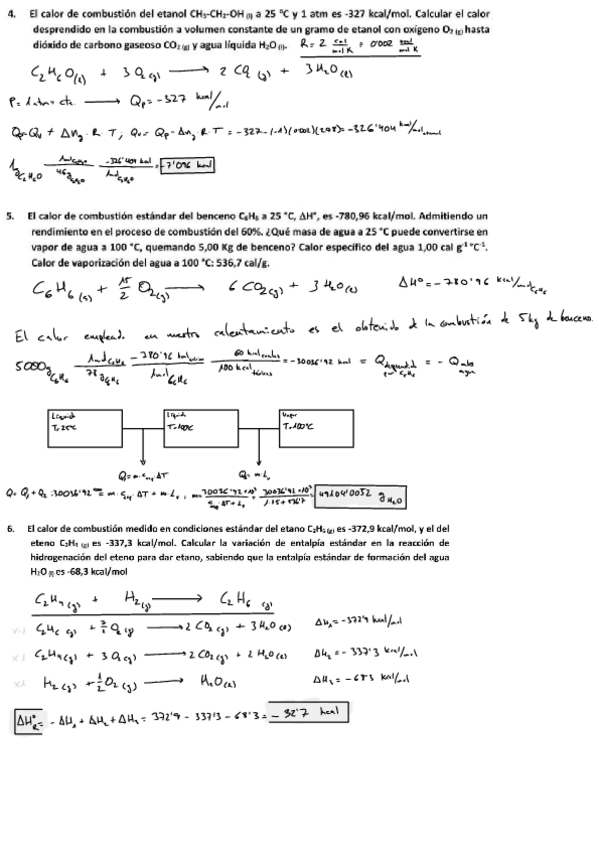 4. El calor de combustión del etanol CH₃-CH₂-OH (l) a 25 °C y 1 atm es -327 kcal/mol. Calcular el calor
desprendido en la combustión a volumen constante de un gramo de etanol con oxígeno O₂ (g) hasta
dióxido de carbono gaseoso CO₂ (g) y agua líquida H₂O (l). R = 2 cal/mol K = 0'002 kcal/mol K
C₂H₆O(l) + 3 O₂(g) ⟶ 2 CO₂(g) + 3 H₂O(l)
P = 1 atm = cte. ⟶ Qp = -327 kcal/mol
Qp = Qv + Δng · R · T ; Qv = Qp - Δng · R · T = -327 - (-1)(0'002)(298) = -326'404 kcal/mol
-7'096 kcal
5. El calor de combustión estándar del benceno C₆H₆ a 25 °C, ΔH°, es -780,96 kcal/mol. Admitiendo un
rendimiento en el proceso de combustión del 60%. ¿Qué masa de agua a 25 °C puede convertirse en
vapor de agua a 100 °C, quemando 5,00 Kg de benceno? Calor específico del agua 1,00 cal g⁻¹ °C⁻¹.
Calor de vaporización del agua a 100 °C: 536,7 cal/g.
C₆H₆(l) + 15/2 O₂(g) ⟶ 6 CO₂(g) + 3 H₂O(l) ΔH° = -780'96 kcal/mol C₆H₆
El calor empleado en nuestro calentamiento es el obtenido de la combustión de 5 kg de benceno.
5000 g C₆H₆ 1 mol C₆H₆ / 78 g C₆H₆ -780'96 kcal / 1 mol C₆H₆ 60 kcal / 100 kcal = -30036'92 kcal = Q = -Q abs agua
Líquido Líquido Vapor
T=25°C T=100°C T=100°C
Q₁=m·ce·ΔT Q₂=m·Lv
Q = Q₁ + Q₂ ; 30036'92 = m·ce·ΔT + m·Lv ; 49104'0052 g H₂O
6. El calor de combustión medido en condiciones estándar del etano C₂H₆ (g) es -372,9 kcal/mol, y el del
eteno C₂H₄ (g) es -337,3 kcal/mol. Calcular la variación de entalpía estándar en la reacción de
hidrogenación del eteno para dar etano, sabiendo que la entalpía estándar de formación del agua
H₂O (l) es -68,3 kcal/mol
C₂H₄(g) + H₂(g) ⟶ C₂H₆(g)
x-1 C₂H₆(g) + 7/2 O₂(g) ⟶ 2 CO₂(g) + 3 H₂O(l) ΔH₁ = -372'9 kcal/mol
x1 C₂H₄(g) + 3 O₂(g) ⟶ 2 CO₂(g) + 2 H₂O(l) ΔH₂ = -337'3 kcal/mol
x1 H₂(g) + 1/2 O₂(g) ⟶ H₂O(l) ΔH₃ = -68'3 kcal/mol
ΔH°R = -ΔH₁ + ΔH₂ + ΔH₃ = 372'9 - 337'3 - 68'3 = -32'7 kcal